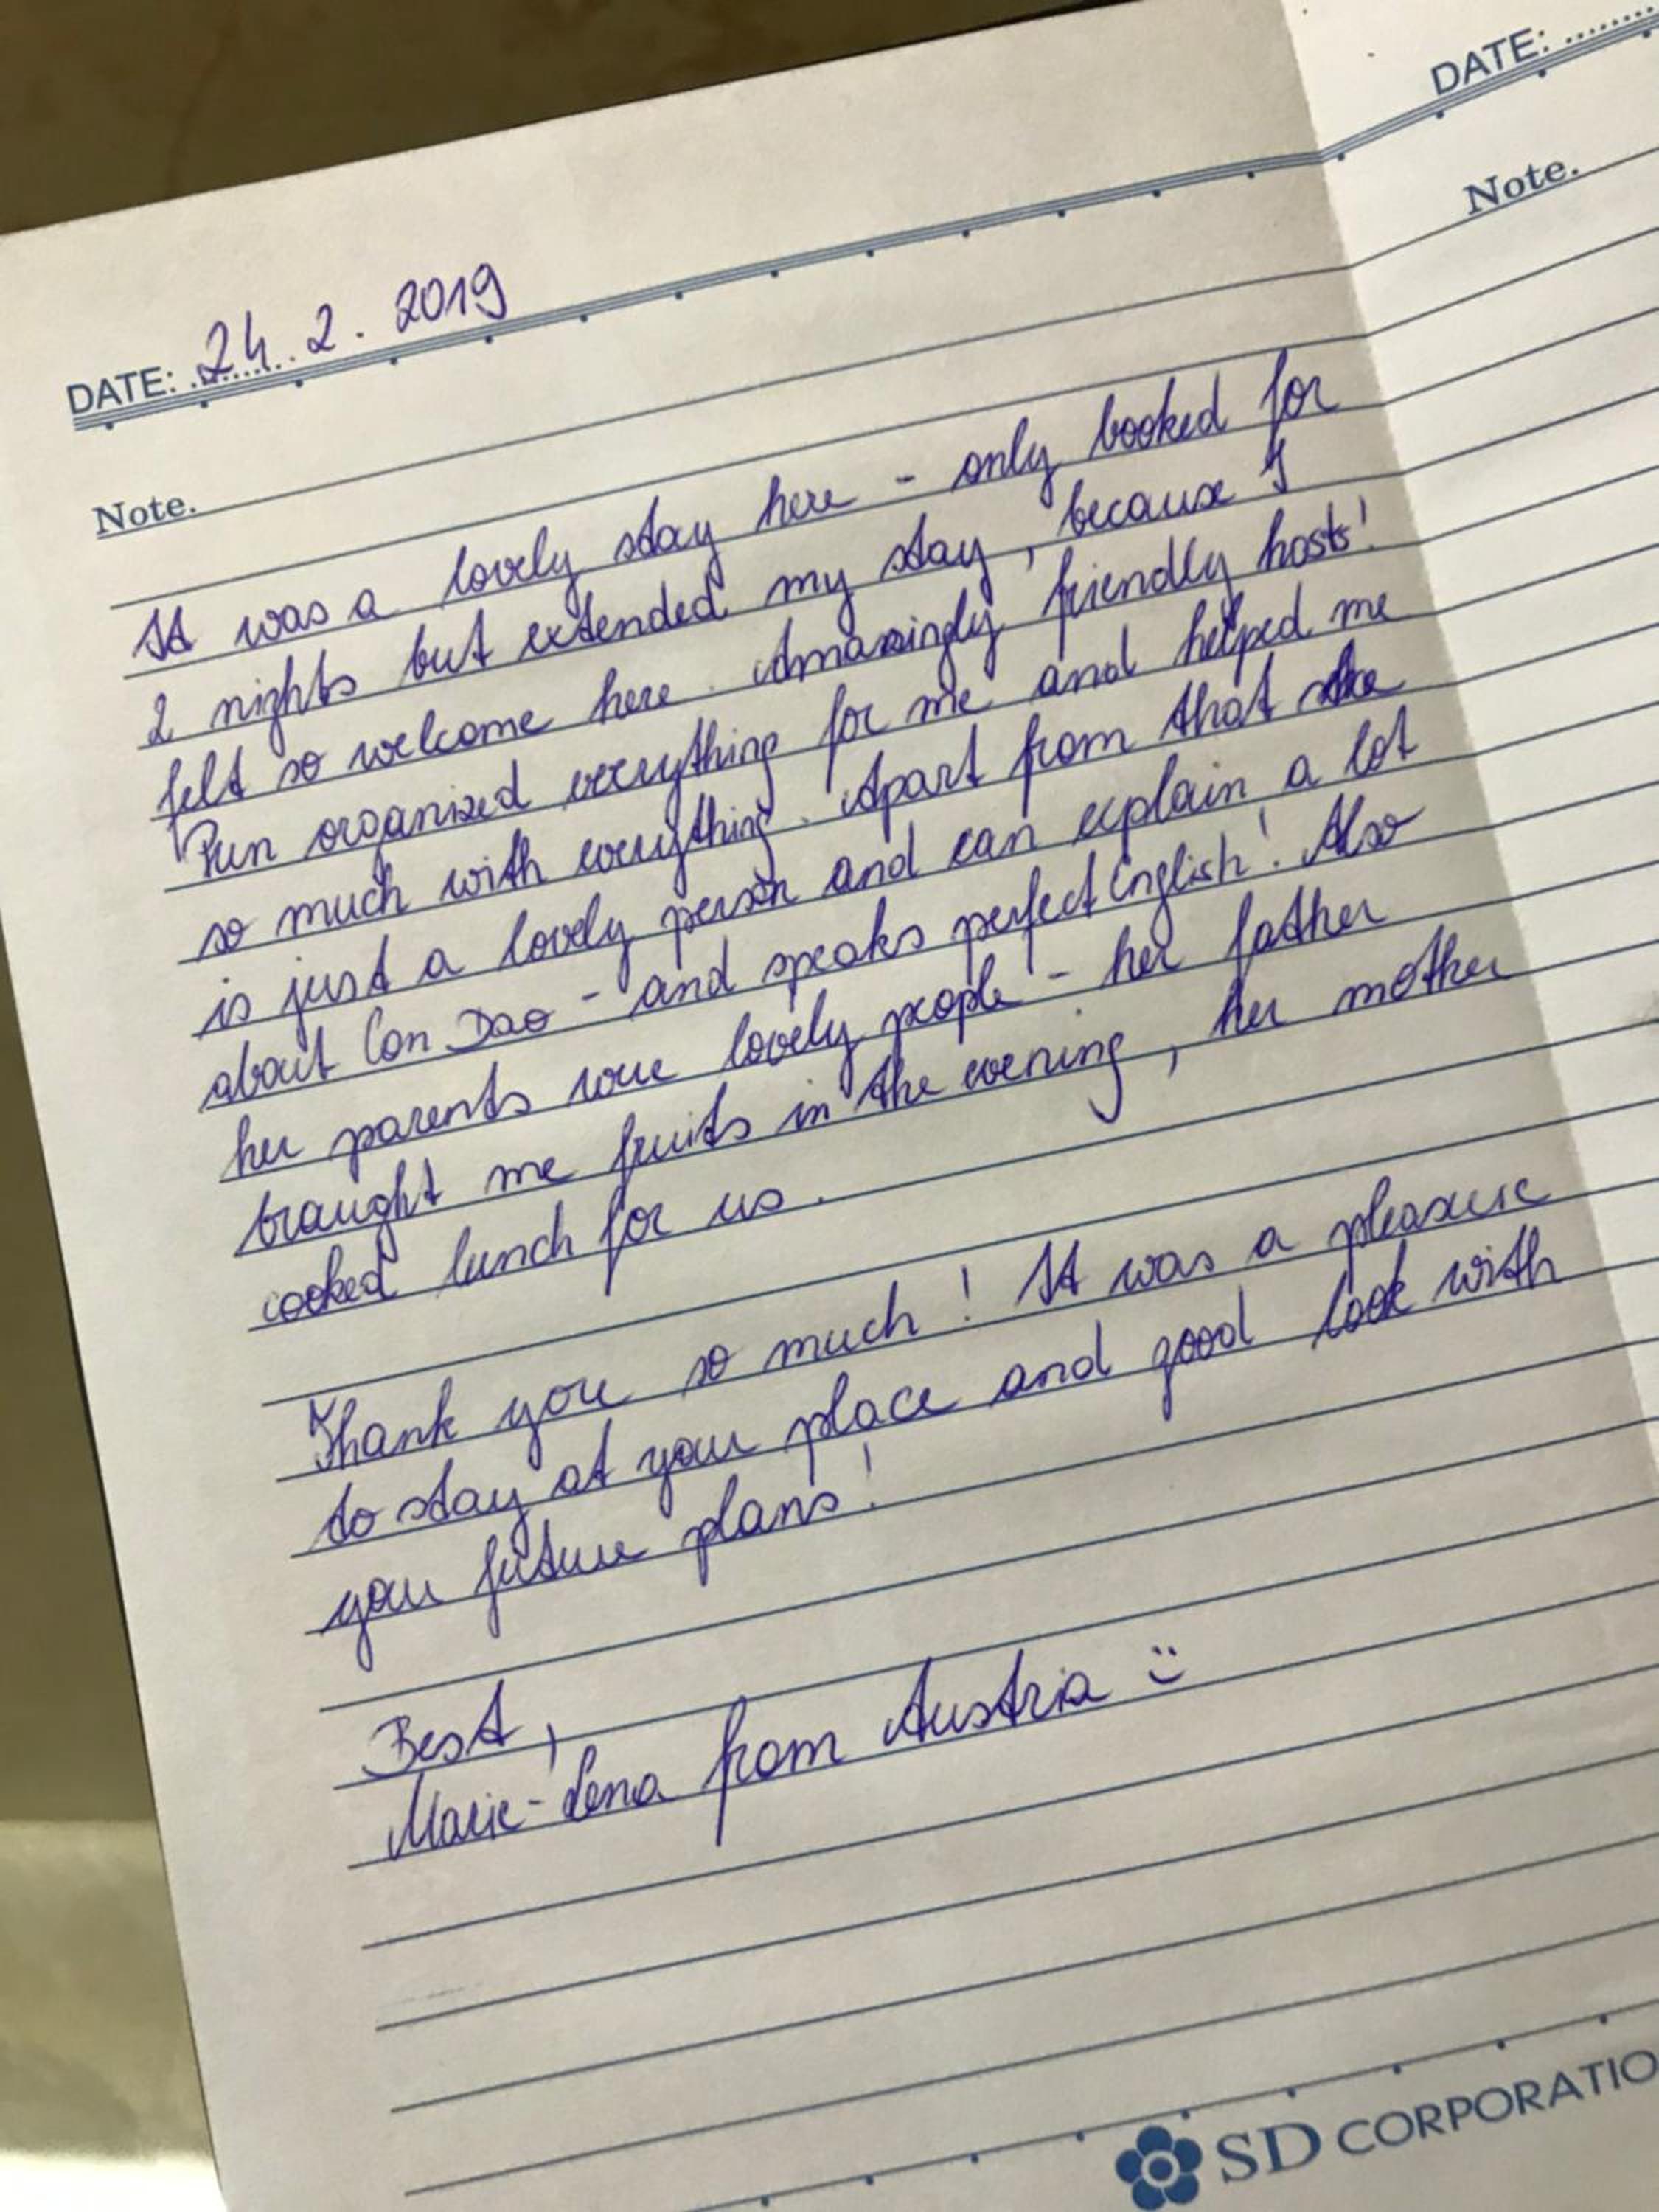 DATE: ..........
Note.
DATE: 24.2.2019
Note.
It was a lovely stay here - only booked for
2 nights but extended my stay, because I
felt so welcome here. Amazingly friendly hosts!
Pun organized everything for me and helped me
so much with everything. Apart from that she
is just a lovely person and can explain a lot
about Con Dao - and speaks perfect English! Also
her parents were lovely people - her father
braught me fruits in the evening, her mother
cooked lunch for us.
Thank you so much! It was a pleasure
to stay at your place and good look with
your future plans!
Best,
Marie-Lena from Austria :)
SD CORPORATIO